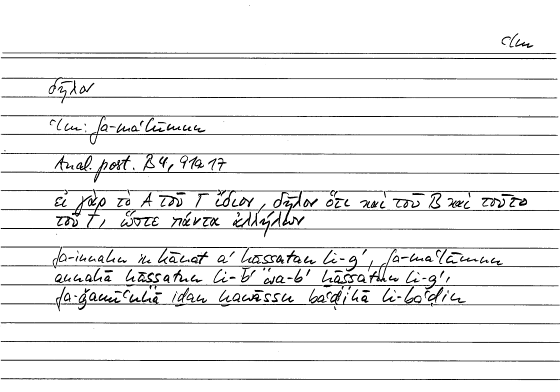 ʿlm
δῆλον
ʿlm: fa-maʿlūmun
Anal. post. B 4, 91a17
εἰ γὰρ τὸ Α τοῦ Γ ἴδιον, δῆλον ὅτι καὶ τοῦ Β καὶ τοῦτο
τοῦ Γ, ὥστε πάντα ἀλλήλων
fa-innahu in kānat a’ ḫāṣṣatan li-g’, fa-maʿlūmun
annahā ḫāṣṣatun li-b’ wa-b’ ḫāṣṣatun li-g’,
fa-ǧamīʿuhā iḏan ḫawāṣṣu baʿḍihā li-baʿḍin